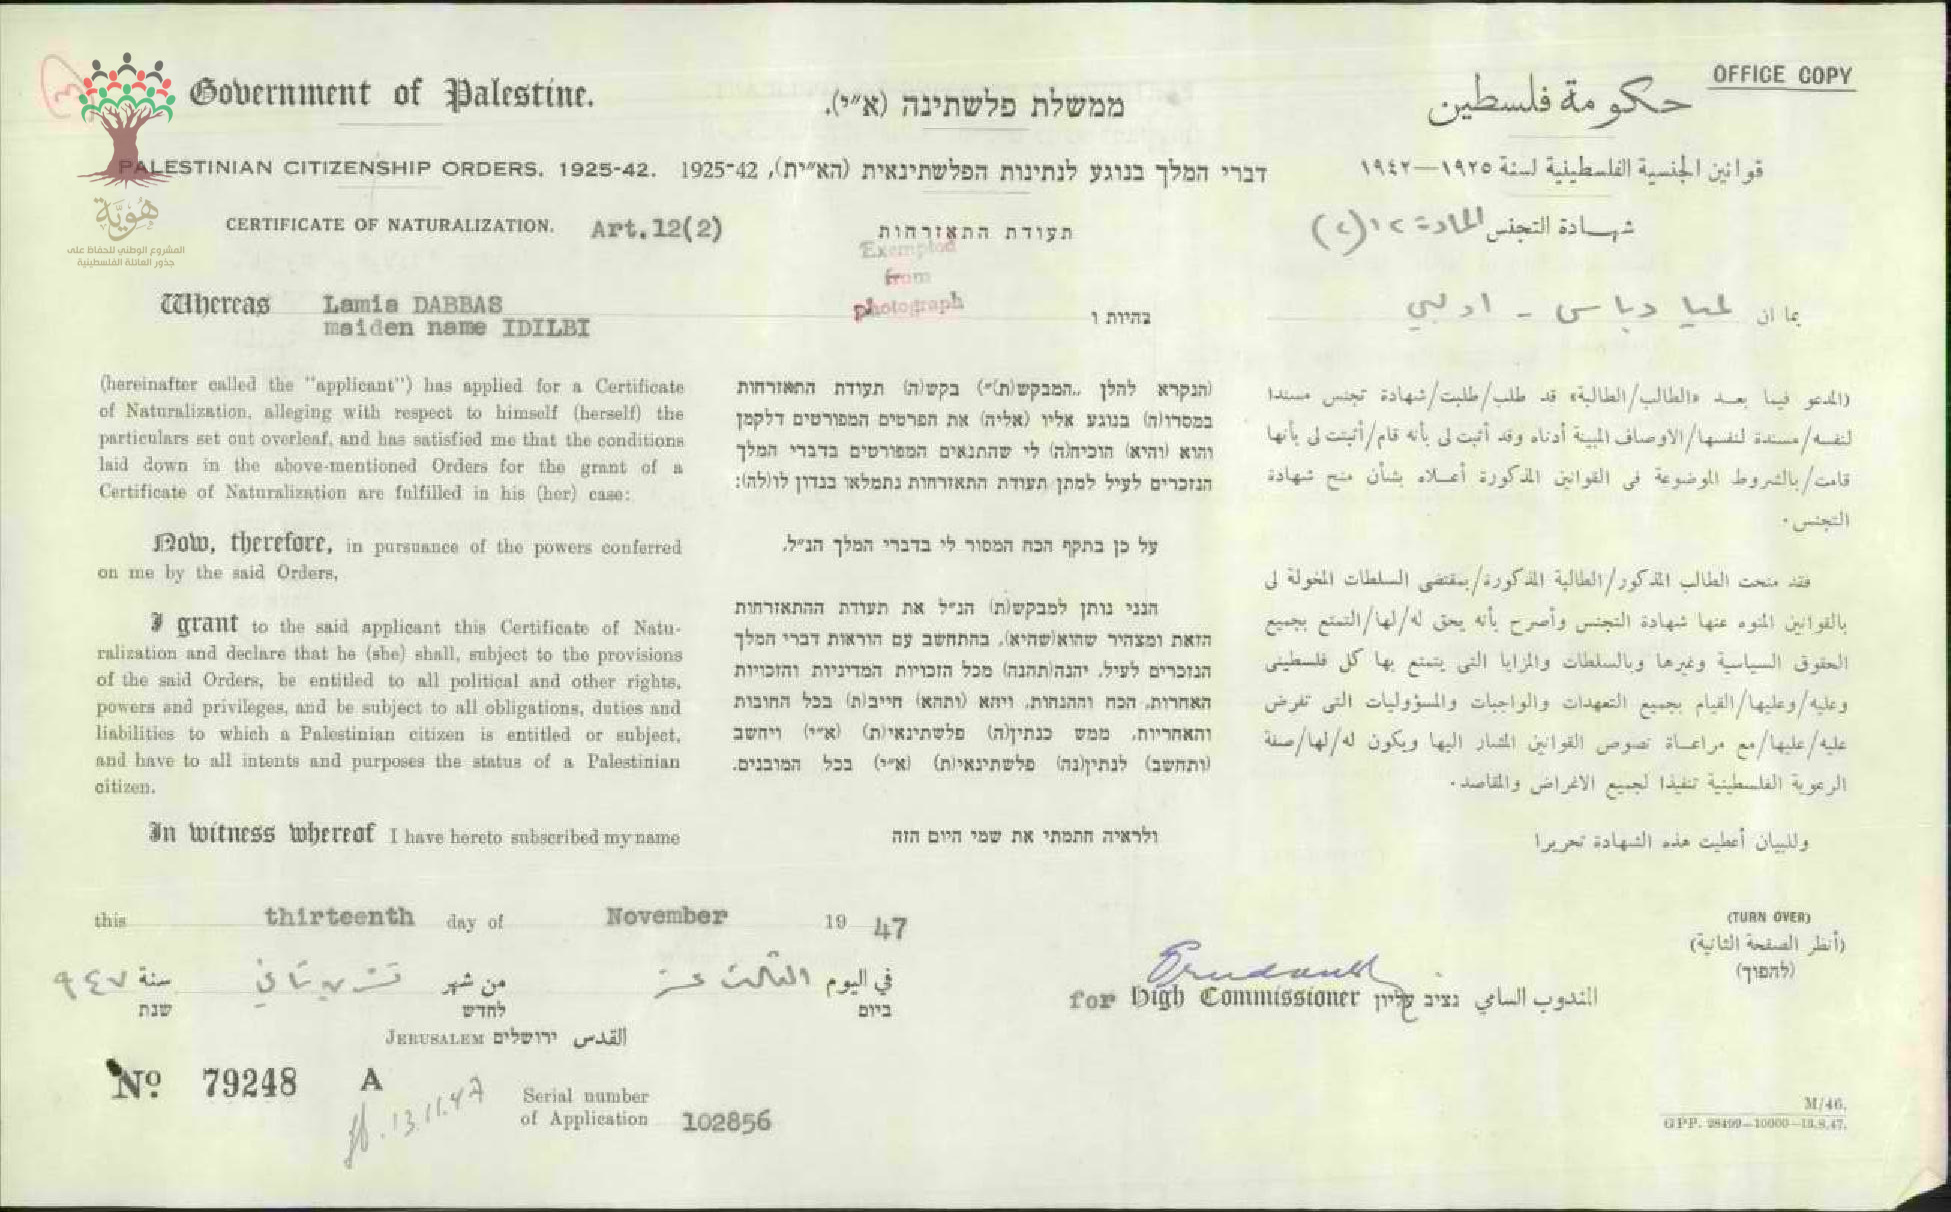 OFFICE COPY
Government of Palestine.
ממשלת פלשתינה (א״י).
حكومة فلسطين
PALESTINIAN CITIZENSHIP ORDERS, 1925-42.
דברי המלך בנוגע לנתינות הפלשתינאית (הא״ית), 1925-42
قوانين الجنسية الفلسطينية لسنة ١٩٢٥—١٩٤٢
هُوِيَّة
المشروع الوطني للحفاظ على
جذور العائلة الفلسطينية
CERTIFICATE OF NATURALIZATION. Art.12(2)
תעודת התאזרחות
شهادة التجنس المادة ١٢ (٢)
Exempted
from
photograph
Whereas Lamia DABBAS
maiden name IDILBI
(hereinafter called the "applicant") has applied for a Certificate
of Naturalization, alleging with respect to himself (herself) the
particulars set out overleaf, and has satisfied me that the conditions
laid down in the above-mentioned Orders for the grant of a
Certificate of Naturalization are fulfilled in his (her) case:
Now, therefore, in pursuance of the powers conferred
on me by the said Orders,
I grant to the said applicant this Certificate of Natu-
ralization and declare that he (she) shall, subject to the provisions
of the said Orders, be entitled to all political and other rights,
powers and privileges, and be subject to all obligations, duties and
liabilities to which a Palestinian citizen is entitled or subject,
and have to all intents and purposes the status of a Palestinian
citizen.
In witness whereof I have hereto subscribed my name
בהיות ו
(הנקרא להלן „המבקש(ת)״) בקש(ה) תעודת התאזרחות
במסרו(ה) בנוגע אליו (אליה) את הפרטים המפורטים דלקמן
והוא (והיא) הוכיח(ה) לי שהתנאים המפורטים בדברי המלך
הנזכרים לעיל למתן תעודת התאזרחות נתמלאו בנדון לו(לה):
על כן בתקף הכח המסור לי בדברי המלך הנ״ל,
הנני נותן למבקש(ת) הנ״ל את תעודת ההתאזרחות
הזאת ומצהיר שהוא(שהיא), בהתחשב עם הוראות דברי המלך
הנזכרים לעיל, יהנה(תהנה) מכל הזכויות המדיניות והזכויות
האחרות, הכח וההנחות, ויהא (ותהא) חייב(ת) בכל החובות
והאחריות, ממש כנתין(ה) פלשתינאי(ת) (א״י) ויחשב
(ותחשב) לנתין(נה) פלשתינאי(ת) (א״י) בכל המובנים.
ולראיה חתמתי את שמי היום הזה
بما ان لميا دباس - ادلبي
(المدعو فيما بعد «الطالب/الطالبة» قد طلب/طلبت/شهادة تجنس مسندا
لنفسه/مسندة لنفسها/الاوصاف المبينة أدناه وقد أثبت لى بأنه قام/أثبتت لى بأنها
قامت/بالشروط الموضوعة فى القوانين المذكورة أعلاه بشأن منح شهادة
التجنس.
فقد منحت الطالب المذكور/الطالبة المذكورة/بمقتضى السلطات المخولة لى
بالقوانين المنوه عنها شهادة التجنس وأصرح بأنه يحق له/لها/التمتع بجميع
الحقوق السياسية وغيرها وبالسلطات والمزايا التى يتمتع بها كل فلسطينى
وعليه/وعليها/القيام بجميع التعهدات والواجبات والمسؤوليات التى تفرض
عليه/عليها/مع مراعاة نصوص القوانين المشار اليها ويكون له/لها/صفة
الرعوية الفلسطينية تنفيذا لجميع الاغراض والمقاصد.
وللبيان أعطيت هذه الشهادة تحريرا
this thirteenth day of November 19 47
في اليوم الثالث عشر من شهر تشرين ثاني سنة ٩٤٧
ביום לחדש שנת
JERUSALEM ירושלים القدس
(TURN OVER)
(أنظر الصفحة الثانية)
(להפוך)
for High Commissioner נציב עליון المندوب السامي
No. 79248 A
13.11.47
Serial number
of Application 102856
M/46.
GPP. 28499—10000—13.8.47.